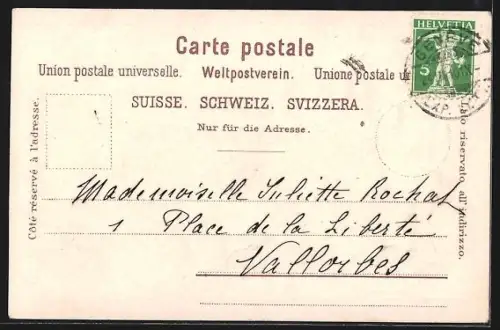 Carte postale
HELVETIA
5
Union postale universelle. Weltpostverein. Unione postale
SUISSE. SCHWEIZ. SVIZZERA.
Nur für die Adresse.
Côté réservé à l'adresse.
Lato riservato all'indirizzo.
Mademoiselle Juliette Rochat
1 Place de la Liberté
Vallorbes